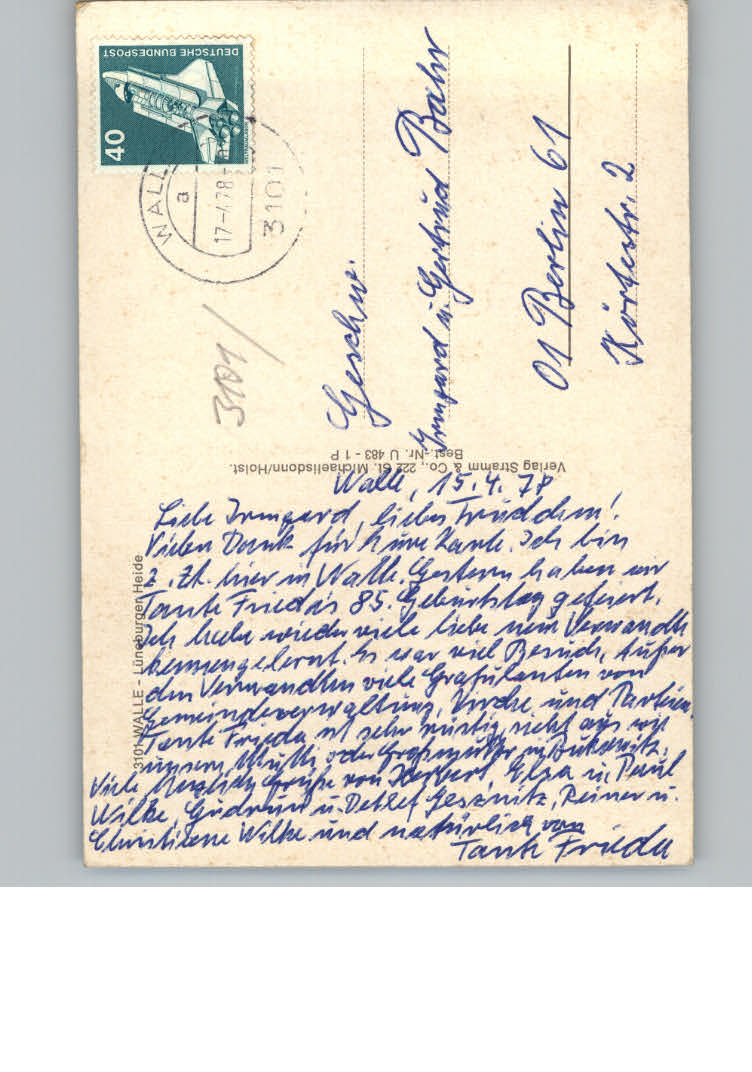 DEUTSCHE BUNDESPOST
40
WALLE
a
17-4.78
3101
3101
Geschw.
Irmgard u. Gertrud Bahr
01 Berlin 61
Körtestr. 2
Verlag Stramm & Co., 222 St. Michaelisdonn/Holst.
Best.-Nr. U 483 - 1 P
3101 WALLE - Lüneburger Heide
Walle, 15.4.78
Liebe Irmgard, liebes Trudchen!
Vielen Dank für Eure Karte. Ich bin
z. Zt. hier in Walle. Gestern haben wir
Tante Frieda's 85. Geburtstag gefeiert.
Ich habe wieder viele liebe Verwandte
kennengelernt. Es war viel Besuch. Außer
den Verwandten viele Gratulanten von
Gemeindeverwaltung, Kirche und Parteien.
Tante Frieda ist sehr rüstig, sieht aus wie
unsere Mutti oder Großmutter in
Viele herzliche Grüße von Herbert, Elsa u. Paul
Wilke, Gudrun u. Detlef Gesznitz, Reiner u.
Christiane Wilke und natürlich von
Tante Frieda